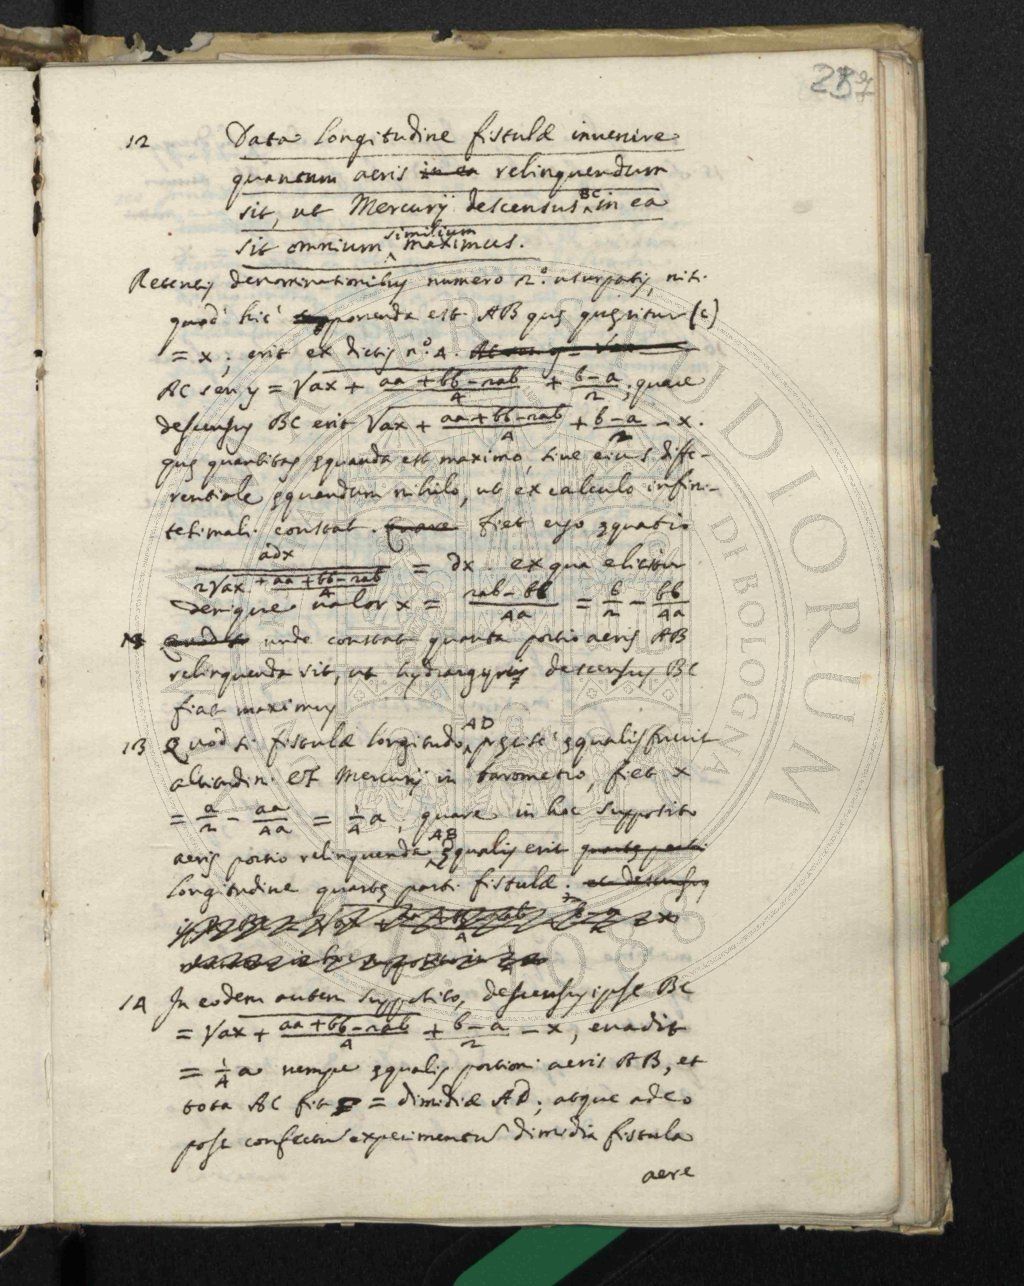 257
12 Data longitudine fistulæ invenire
quantum aeris in ea relinquendum
sit, ut Mercurij descensus BC in ea
sit omnium similium maximus.
Retentis denominationibus numero 2.º usurpatis, nisi
quod hic ponenda est AB quę quęritur (c)
= x; erit ex dictis n.º 4.
AC seu y = √ax + aa+bb-2ab/4 + b-a/2; quare
descensus BC erit √ax + aa+bb-2ab/4 + b-a/2 - x.
quę quantitas ęquanda est maximo, sive eius diffe-
rentiale ęquandum nihilo, ut ex calculo infini-
tesimali constat. Quare fiet ergo ęquatio
adx/2√ax + aa+bb-2ab/4 = dx. ex qua elicitur
denique valor x = 2ab-bb/4a = b/2 - bb/4a
unde constat quanta portio aeris AB
relinquenda sit, ut hydrargyrus descensus BC
fiat maximus
13 Quod si fistulæ longitudo AD pręcisè ęqualis fuerit
altitudini EF Mercurij in barometro, fiet x
= a/2 - aa/4a = 1/4 a, quare in hoc supposito
aeris portio relinquenda AB ęqualis erit quartę parti
longitudine quartę parti fistulæ. et descensus
14 In eodem autem supposito, descensus ipse BC
= √ax + aa+bb-2ab/4 + b-a/2 - x, evadit
= 1/4 a nempe ęqualis portioni aeris AB, et
tota AC fit = dimidiæ AD; atque adeo
post confectū experimentū dimidia fistula
aere
BIBLIOTHECA
STUDIORUM